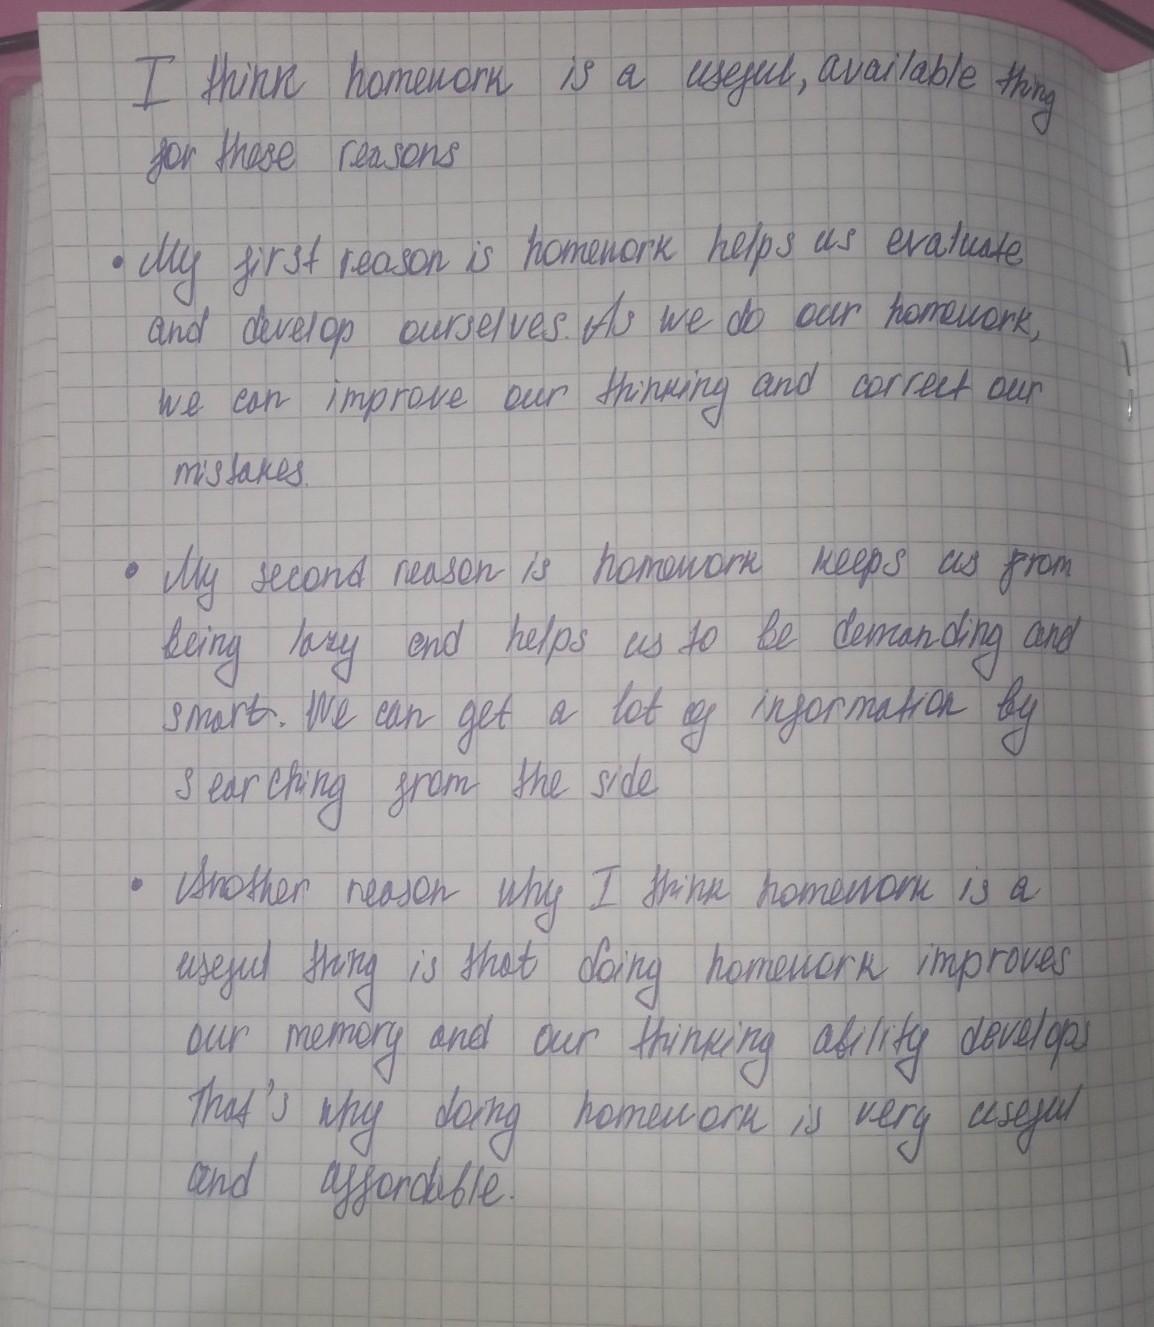 I think homework is a useful, available thing
for these reasons
• My first reason is homework helps us evaluate
and develop ourselves. As we do our homework,
we can improve our thinking and correct our
mistakes.
• My second reason is homework keeps us from
being lazy and helps us to be demanding and
smart. We can get a lot of information by
searching from the side
• Another reason why I think homework is a
useful thing is that doing homework improves
our memory and our thinking ability develops
That's why doing homework is very useful
and affordable.